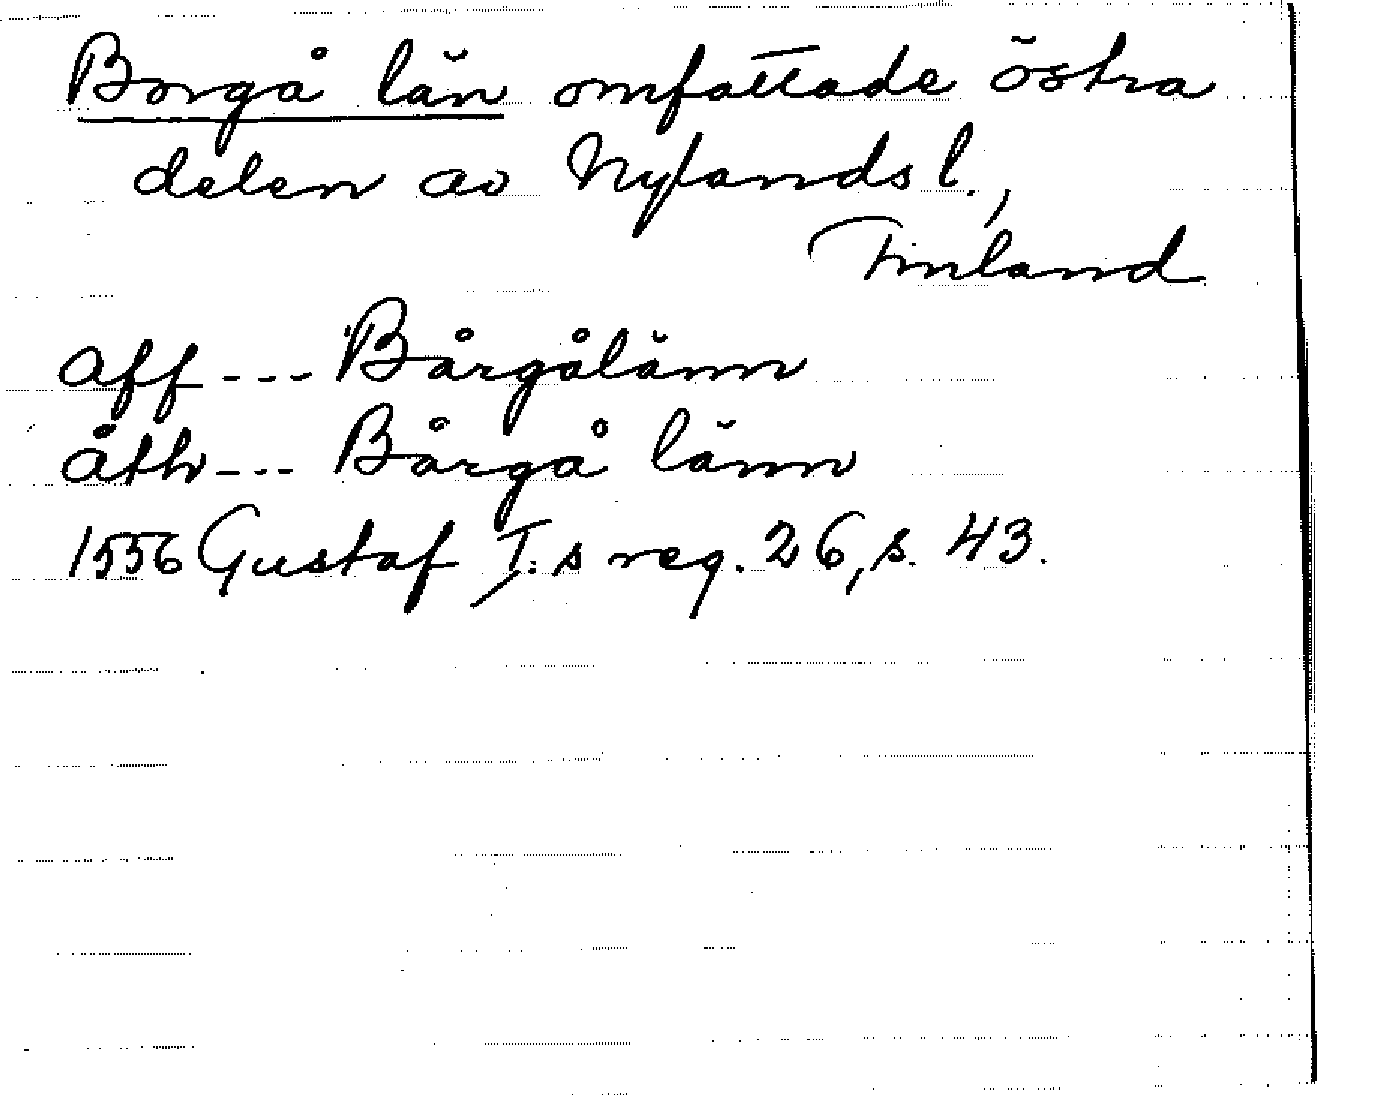 Borgå län omfattade östra
delen av Nylands l.,
Finland
aff --- Bårgålänn
åth --- Bårgå länn
1556 Gustaf I:s reg. 26, s. 43.